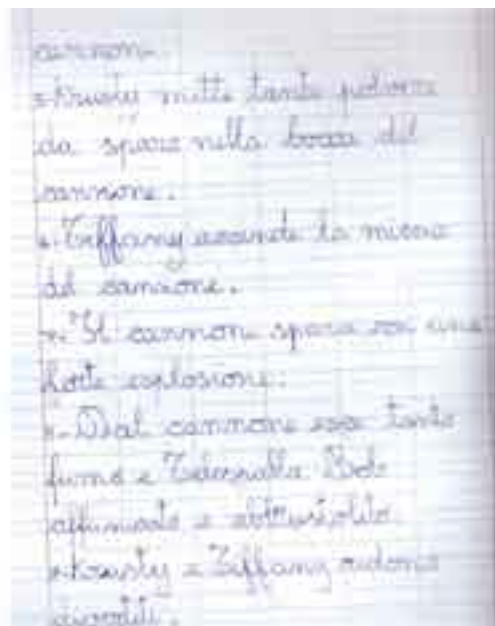 cannon.
Krusty mette tanta polvere
da sparo nella bocca del
cannone.
Tiffany accende la miccia
del cannone.
Il cannone spara con una
forte esplosione.
Dal cannone esce tanto
fumo e Telespalla Bob
affumicato e abbrustolito.
Krusty e Tiffany ridono
divertiti.